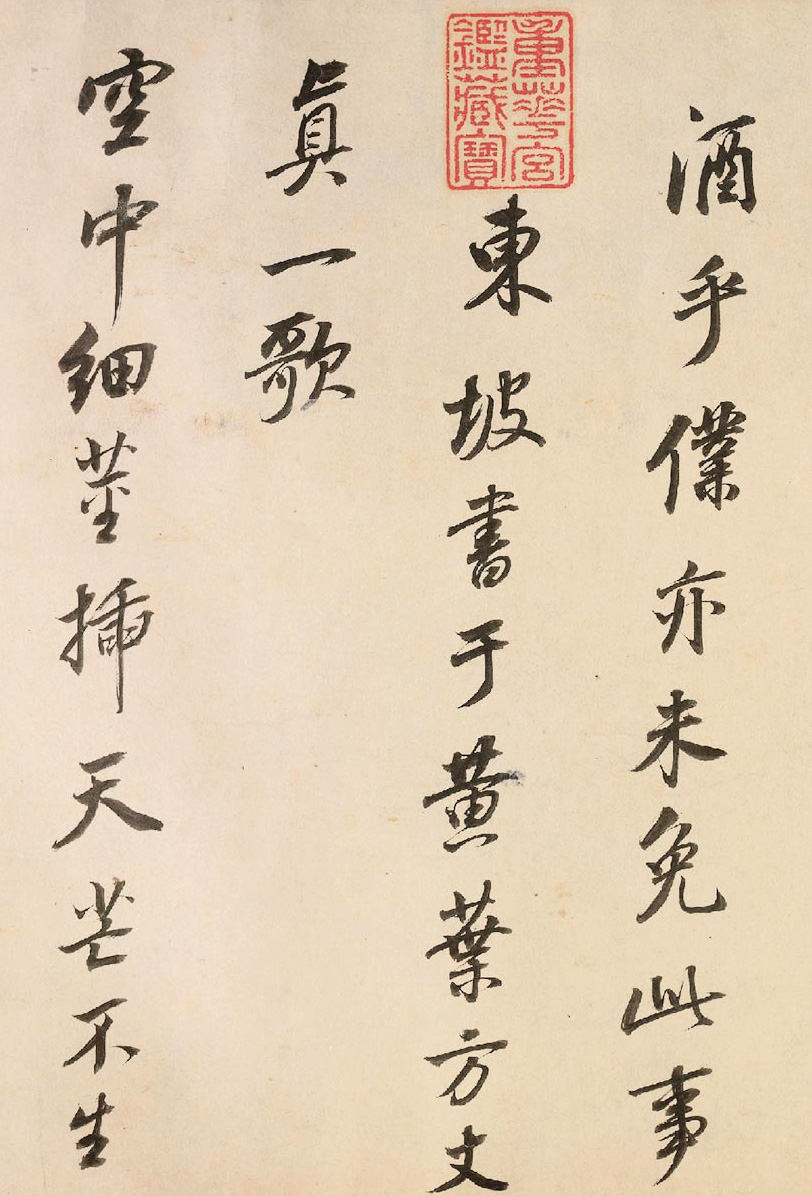 酒乎僕亦未免此事
重華宮
鑑藏寶
東坡書于黄葉方丈
眞一歌
空中細莖揷天芒不生